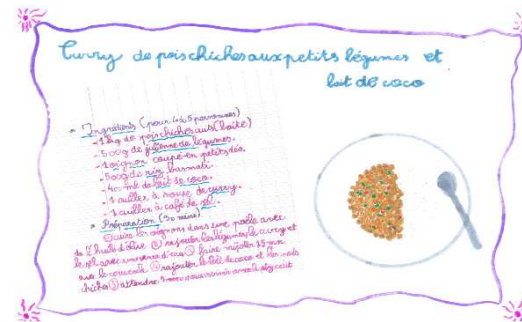 Curry de pois chiches aux petits légumes et
lait de coco
• Ingrédients (pour 4 à 5 personnes)
- 1 kg de pois chiches cuits (boîte)
- 500g de julienne de légumes.
- 1 oignon coupé en petits dés.
- 500g de riz basmati.
- 400 ml de lait de coco.
- 1 cuiller à soupe de curry.
- 1 cuiller à café de sel.
• Préparation (30 mins)
① cuire les oignons dans une poêle avec
de l'huile d'olive ② rajouter les légumes, le curry et
le sel avec un verre d'eau ③ faire mijoter 15 mn
avec le couvercle ④ rajouter le lait de coco et les pois
chiches ⑤ attendre 5 mn pour servir avec le riz cuit